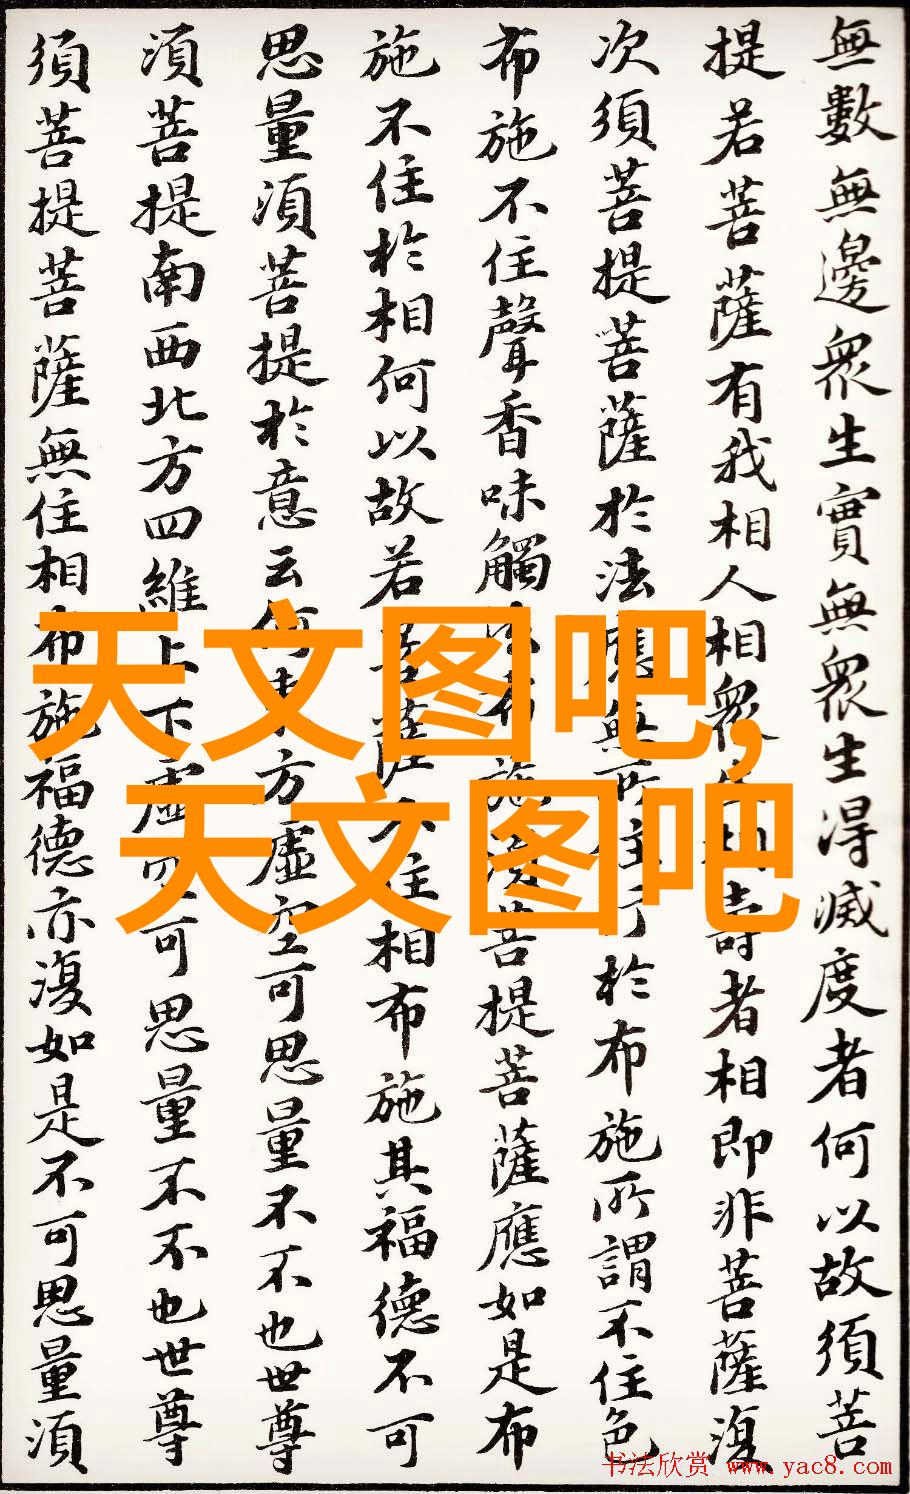 無數無邊衆生實無衆生得滅度者何以故須菩
提若菩薩有我相人相衆生相壽者相即非菩薩復
次須菩提菩薩於法應無所住行於布施所謂不住色
布施不住聲香味觸法布施須菩提菩薩應如是布
施不住於相何以故若菩薩不住相布施其福德不可
思量須菩提於意云何東方虛空可思量不不也世尊
須菩提南西北方四維上下虛空可思量不不也世尊
須菩提菩薩無住相布施福德亦復如是不可思量須
天文图吧,
天文图吧
书法欣赏 www.yac8.com